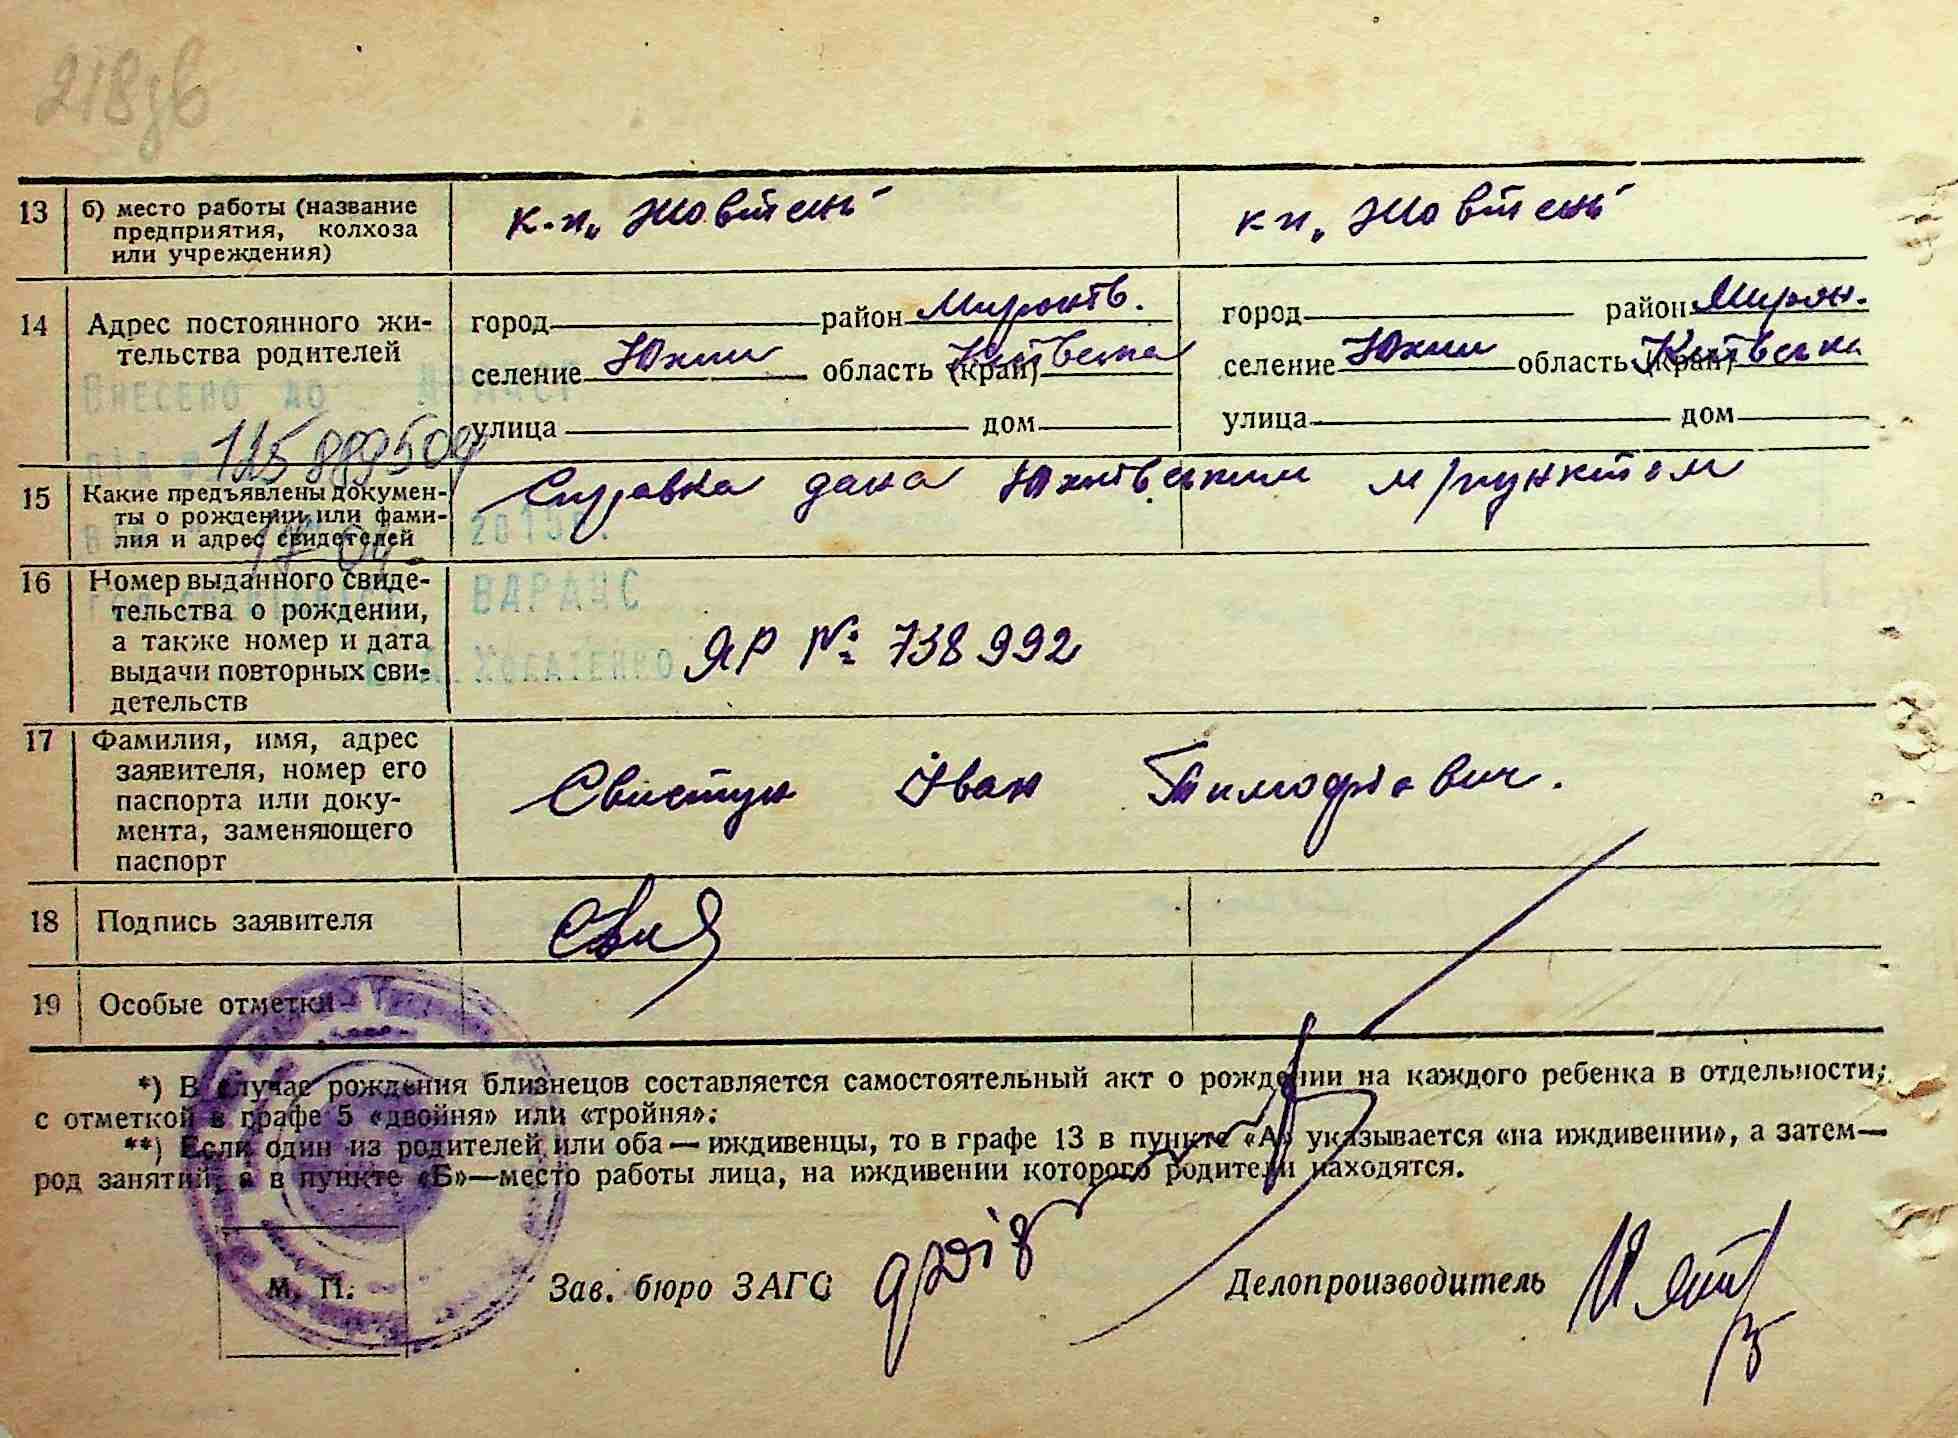 218зв
13 б) место работы (название к-п „Жовтень" кп „Жовтень"
предприятия, колхоза
или учреждения)
14 Адрес постоянного жи- город район Миронів. город район Мирон.
тельства родителей селение Юхни область (край) Київська селение Юхни область (край) Київська
Внесено до
улица дом улица дом
15 Какие предъявлены докумен- Справка дана Юхнівським м/пунктом
ты о рождении или фами-
лия и адрес свидетелей
16 Номер выданного свиде-
тельства о рождении,
а также номер и дата ЯР № 738992
выдачи повторных сви-
детельств
17 Фамилия, имя, адрес
заявителя, номер его Свистун Іван Тимофієвич.
паспорта или доку-
мента, заменяющего
паспорт
18 Подпись заявителя
19 Особые отметки
*) В случае рождения близнецов составляется самостоятельный акт о рождении на каждого ребенка в отдельности,
с отметкой в графе 5 «двойня» или «тройня».
**) Если один из родителей или оба — иждивенцы, то в графе 13 в пункте «А» указывается «на иждивении», а затем—
род занятий, а в пункте «Б»—место работы лица, на иждивении которого родители находятся.
М. П. Зав. бюро ЗАГС Делопроизводитель